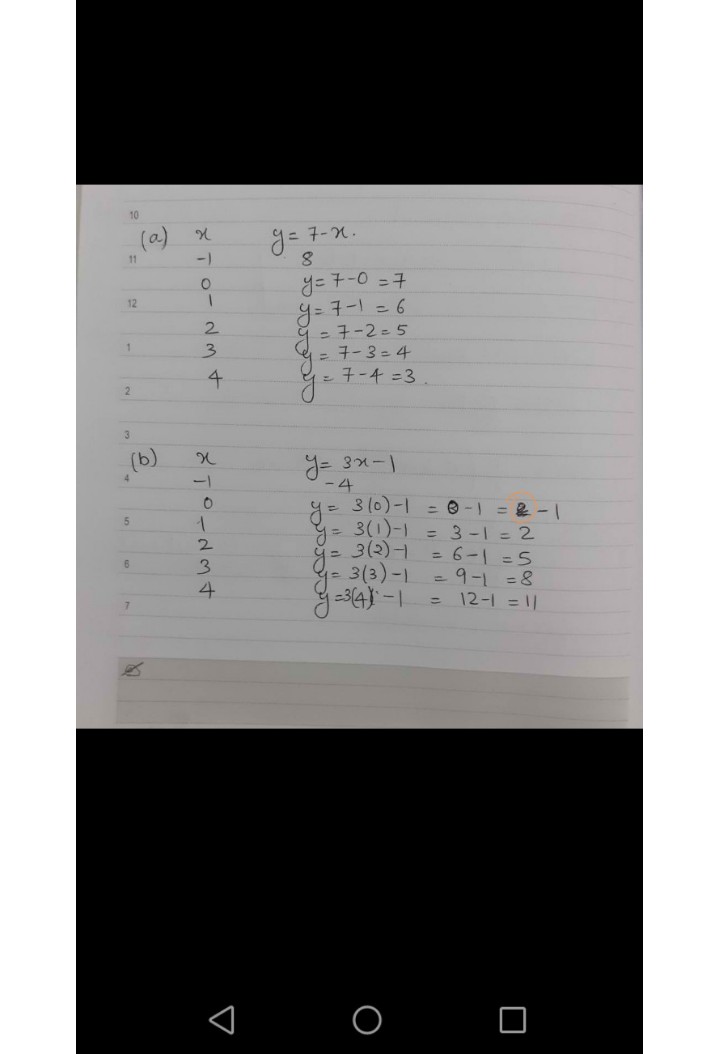 10
(a) x y = 7-x.
11 -1 8
0 y = 7-0 = 7
12 1 y = 7-1 = 6
2 y = 7-2 = 5
1 3 y = 7-3 = 4
4 y = 7-4 = 3.
2
3
(b) x y = 3x-1
4 -1 -4
0 y = 3(0)-1 = 0-1 = -1
5 1 y = 3(1)-1 = 3-1 = 2
2 y = 3(2)-1 = 6-1 = 5
6 3 y = 3(3)-1 = 9-1 = 8
4 y = 3(4)-1 = 12-1 = 11
7